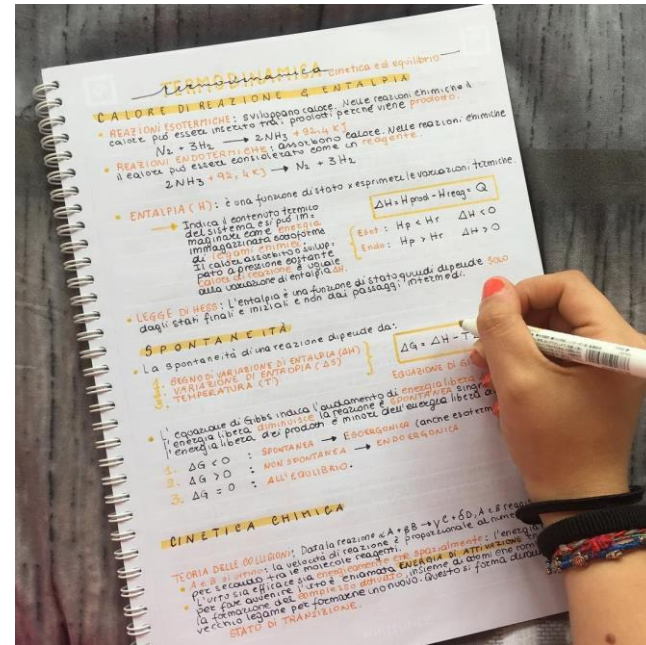 TERMODINAMICA cinetica ed equilibrio
termodinamica
CALORE DI REAZIONE & ENTALPIA
• REAZIONI ESOTERMICHE: sviluppano calore. Nelle reazioni chimiche il
calore può essere inserito tra i prodotti perché viene prodotto.
N2 + 3H2 → 2NH3 + 92,4 KJ
• REAZIONI ENDOTERMICHE: assorbono calore. Nelle reazioni chimiche
il calore può essere considerato come un reagente.
2NH3 + 92,4 KJ → N2 + 3H2
• ENTALPIA (H): è una funzione di stato x esprimere le variazioni termiche.
→ Indica il contenuto termico
del sistema e si può im-
maginare come energia
immagazzinata sottoforma
di legami chimici.
Il calore assorbito o svilup-
pato a pressione costante
calore di reazione è uguale
alla variazione di entalpia ΔH.
ΔH = Hprod - Hreag = Q
Esot: Hp < Hr ΔH < 0
Endo: Hp > Hr ΔH > 0
• LEGGE DI HESS: L'entalpia è una funzione di stato quindi dipende SOLO
dagli stati finali e iniziali e non dai passaggi intermedi.
SPONTANEITÀ
• La spontaneità di una reazione dipende da:
1. SEGNO DI VARIAZIONE DI ENTALPIA (ΔH)
2. VARIAZIONE DI ENTROPIA (ΔS)
3. TEMPERATURA (T)
ΔG = ΔH - T
EQUAZIONE DI
• L'equazione di Gibbs indica l'andamento di energia libera
l'energia libera diminuisce la reazione è SPONTANEA
l'energia libera dei prodotti è minore dell'energia libera
1. ΔG < 0 : SPONTANEA → ESOERGONICA (anche esoterm
2. ΔG > 0 : NON SPONTANEA → ENDOERGONICA
3. ΔG = 0 : ALL'EQUILIBRIO.
CINETICA CHIMICA
TEORIA DELLE COLLISIONI: Data la reazione αA + βB → γC + δD, A e B
• A e B si urtino: la velocità di reazione è proporzionale al
per secondo tra le molecole reagenti.
• L'urto sia efficace sia energicamente che spazialmente: l'energia
per fare avvenire l'urto è chiamata ENERGIA DI ATTIVAZIONE
la formazione del complesso attivato, insieme di atomi che
vecchio legame per formarne uno nuovo. Questo si forma
STATO DI TRANSIZIONE.